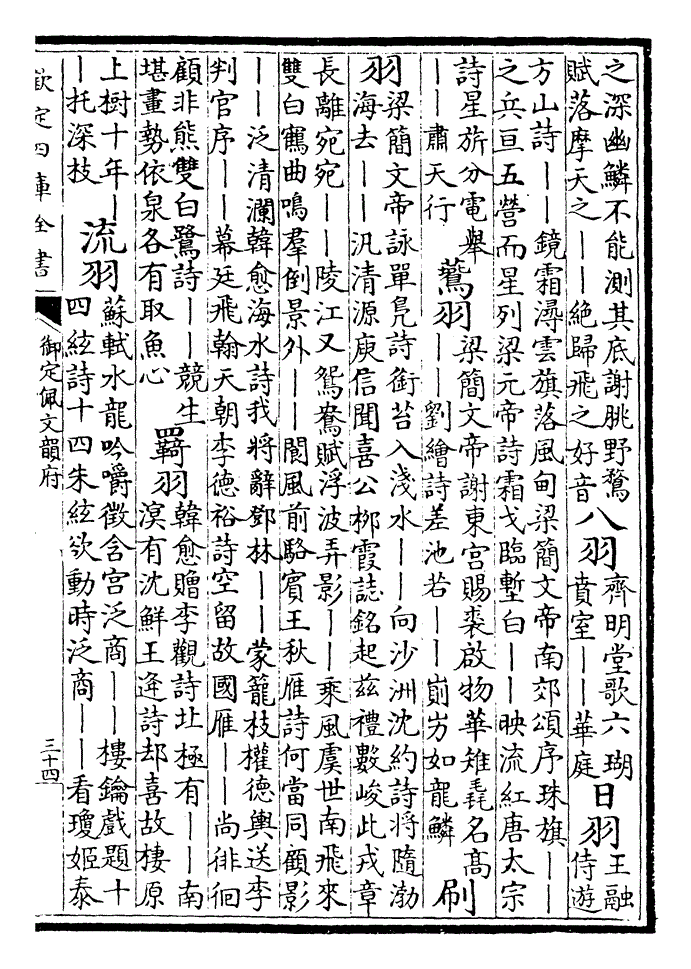 之深幽鱗不能測其底謝脁野鶩
賦落摩天之丨丨絶歸飛之好音
八羽
齊明堂歌六瑚
賁室丨丨華庭
日羽
王融
侍遊
方山詩丨丨鏡霜潯雲旗落風甸梁簡文帝南郊頌序珠旗丨丨
之兵亘五營而星列梁元帝詩霜戈臨塹白丨丨映流紅唐太宗
詩星旂分電舉
丨丨肅天行
鷩羽
梁簡文帝謝東宫賜裘啟物華雉毳名髙
丨丨劉繪詩差池若丨丨崱屴如龍鱗
刷
羽
梁簡文帝詠單鳬詩銜苔入淺水丨丨向沙洲沈約詩將隨渤
海去丨丨汎清源庾信聞喜公栁霞誌銘起兹禮數峻此戎章
長離宛宛丨丨陵江又鴛鴦賦浮波弄影丨丨乘風虞世南飛來
雙白鶱曲鳴羣倒景外丨丨閬風前駱賓王秋雁詩何當同顧影
丨丨泛清瀾韓愈海水詩我將辭鄧林丨丨蒙籠枝權德輿送李
判官序丨丨幕廷飛翰天朝李德裕詩空留故國雁丨丨尚徘徊
顧非熊雙白鷺詩丨丨競生
堪畫勢依泉各有取魚心
羈羽
韓愈贈李觀詩北極有丨丨南
溟有沈鮮王逄詩却喜故棲原
上樹十年丨
丨托深枝
流羽
蘇軾水龍吟嚼徵含宫泛商丨丨樓鑰戲題十
四絃詩十四朱絃欲動時泛商丨丨看瓊姬泰
欽定四庫全書
御定佩文韻府
三十四